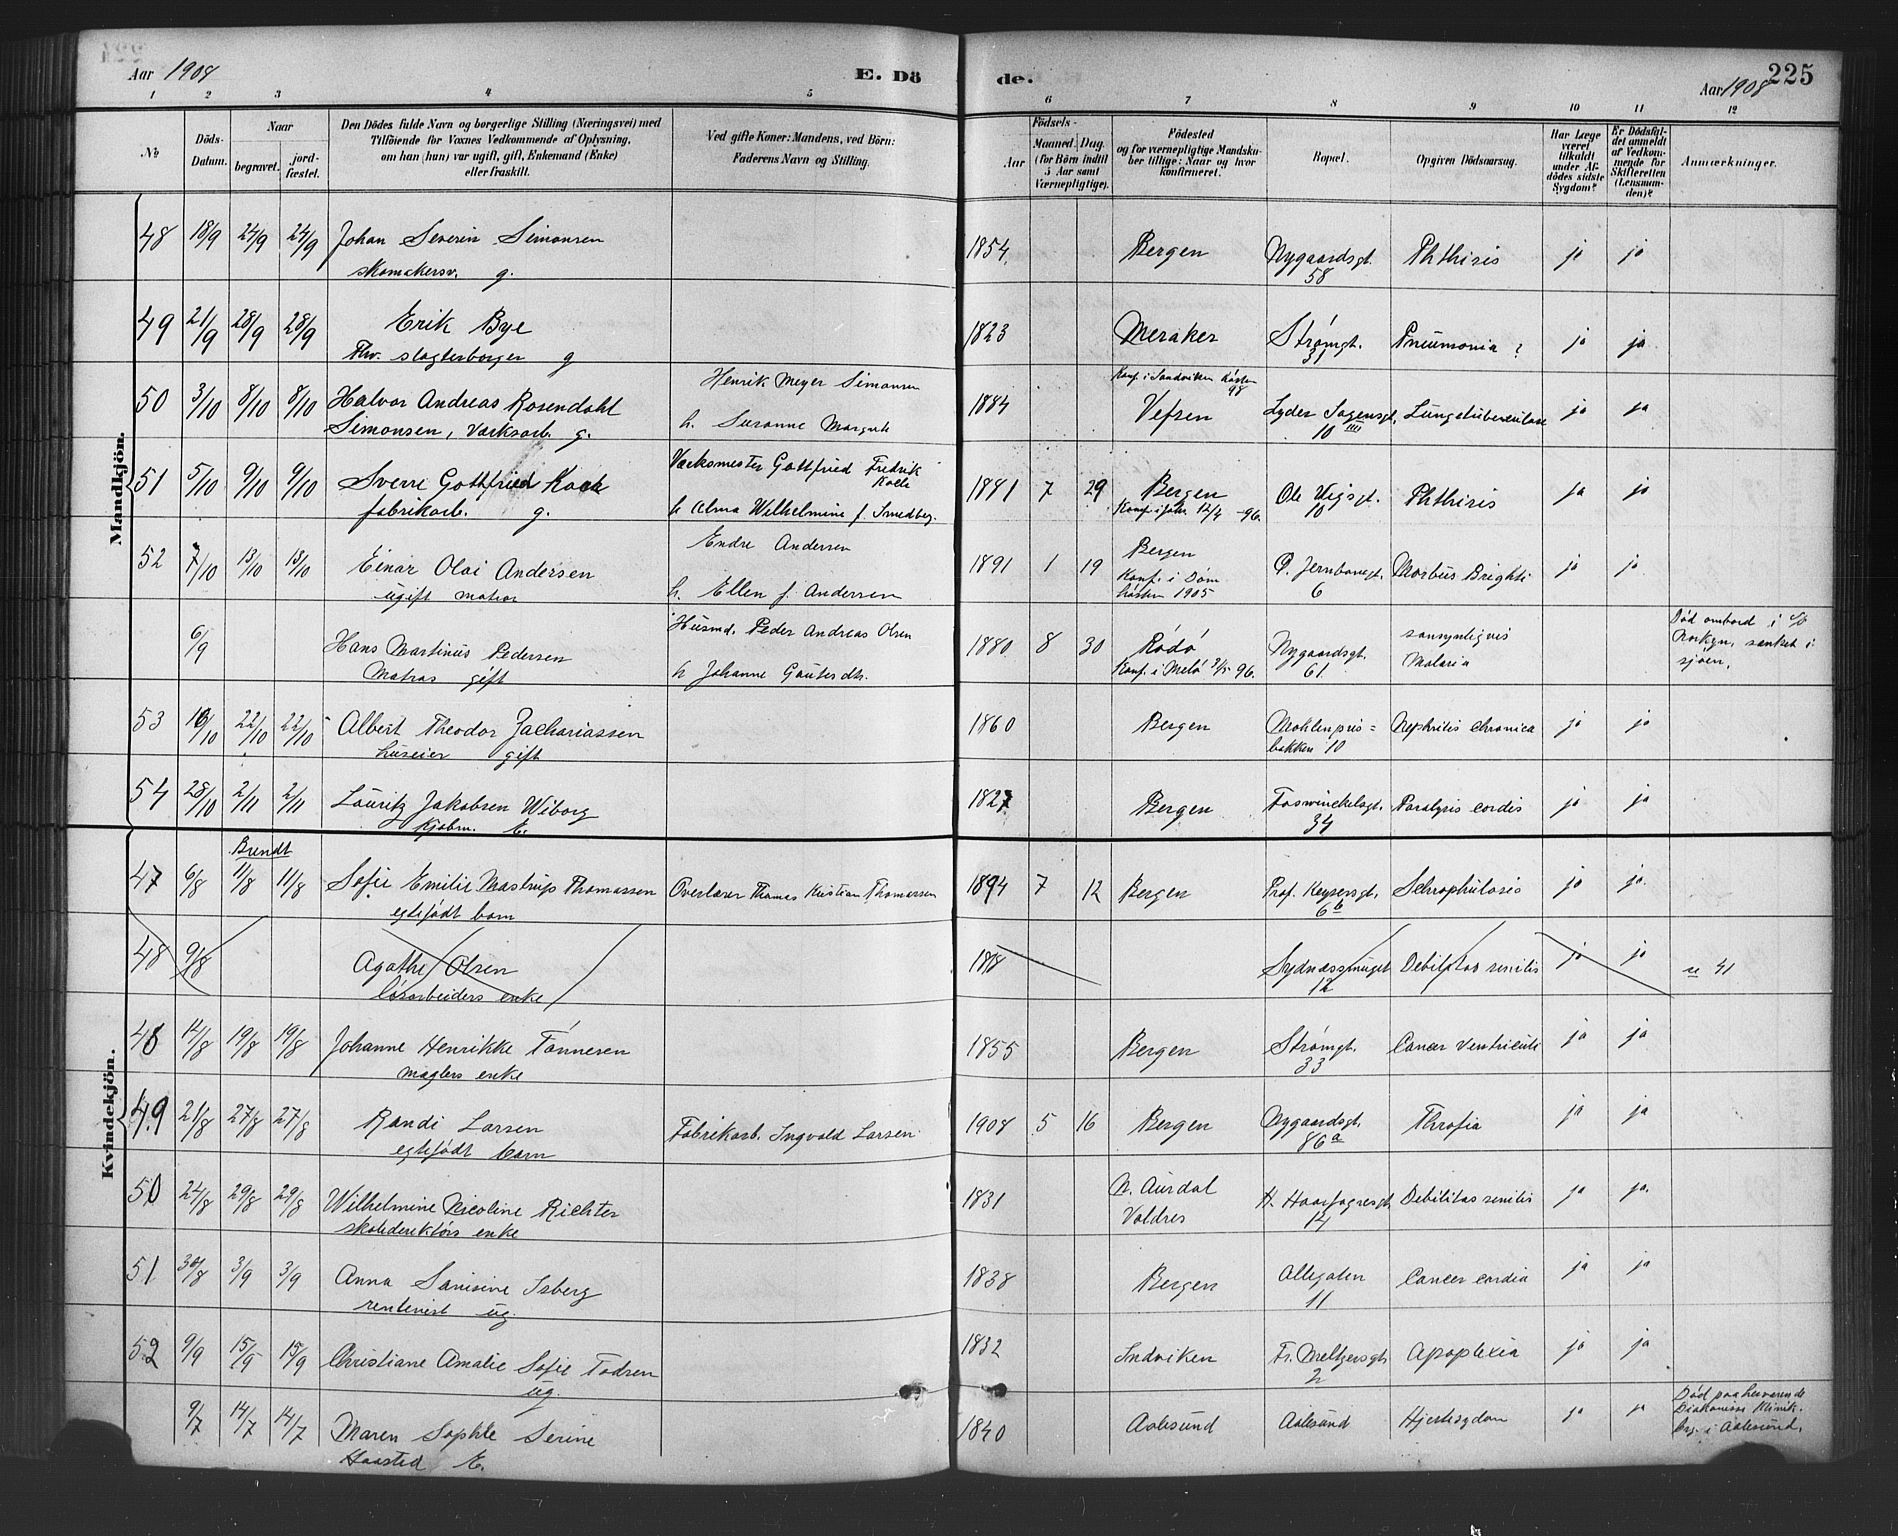 Aar 1908
E. Dö
de.
Aar 1908
225
1 2 3 4 5 6 7 8 9 10 11 12
No
Döds-
Datum.
Naar
begravet.
jord-
fæstet.
Den Dödes fulde Navn og borgerlige Stilling (Næringsvei) med
Tilföiende for Voxnes Vedkommende af Oplysning,
om han (hun) var ugift, gift, Enkemand (Enke)
eller fraskilt.
Ved gifte Koner: Mandens, ved Börn:
Faderens Navn og Stilling.
Födsels-
Aar
Maaned. Dag.
(for Börn indtil
5 Aar samt
Værnepligtige).
Födested
og for værnepligtige Mandska-
ber tillige: Naar og hvor
konfirmeret.
Bopæl.
Opgiven Dödsaarsag.
Har Læge
været
tilkaldt
under Af-
dödes sidste
Sygdom?
Er Dödsfal-
det anmeldt
af Vedkom-
mende for
Skifteretten
(Lensman-
den)?
Anmærkninger.
Mandkjön.
48 18/9 24/9 24/9 Johan Severin Simonsen
skomakersv. g.
1854. Bergen Nygaardsgt. 58 Phthisis ja ja
49 21/9 28/9 28/9 Erik Bye
Fhv. slagterborger g
1823 Meraker Strømgt. 31 Pneumonia ? ja ja
50 3/10 8/10 8/10 Halvor Andreas Rosendahl
Simonsen, Værksarb. g.
Henrik Meyer Simonsen
h. Susanne Margrete
1884 Konf. i Sandviken høsten 98
Vefsen Lyder Sagensgt. 10 IIII Lungetuberculose ja ja
51 5/10 9/10 9/10 Sverre Gottfried Koch
fabrikarb. g.
Værksmester Gottfried Fredrik
h Alma Wilhelmine f. Smedberg.
1881 7 29 Bergen
Konf. i Joh. 12/4 -96. Ole Vigsgt. 10 Phthisis ja ja
52 7/10 13/10 13/10 Einar Olai Andersen
ugift matros
Endre Andersen
h. Ellen f. Andersen
1891 1 19 Bergen
Konf. i Dom
høsten 1905 Ø. Jernbanegt. 6 Morbus Brighti ja ja
6/9 Hans Martinus Pedersen
Matros gift
Husmd. Peder Andreas Olsen
h Johanne Gautesdtr.
1880 8 30 Rödö
Konf. i Melö 96. Nygaardsgt. 61 sansynligvis
Malaria
Död ombord i S/S
sænket i
sjöen.
53 16/10 22/10 22/10 Albert Theodor Zachariassen
huseier gift
1860 Bergen Møhlenpris=
bakken 10 Nephritis chronica ja ja
54 28/10 2/11 2/11 Lauritz Jakobsen Wiborg
Kjøbm. E.
1827 Bergen Foswinckelsgt. 34 Paralysis cordis ja ja
Kvindekjön.
Brendt
47 6/8 11/8 11/8 Sofie Emilie Mastrup Thomassen
egtefødt barn
Overlærer Thomas Kristian Thomassen
1894 7 12 Bergen Prof. Keysersgt. 6b Schrophulosis ja ja.
48 9/8 Agathe Olsen
løsarbeiders enke
1818 Sydnæssmuget 12 Debilitas senilis ja ja se 41
48 14/8 19/8 19/8 Johanne Henrikke Tönnesen
mæglers enke
1855 Bergen Strømgt. 33 Cancer Ventriculi ja ja
49 21/8 27/8 27/8 Randi Larsen
egtefødt barn
Fabrikarb. Ingvald Larsen
1908 5 16 Bergen Nygaardsgt. 86a Throfia ja ja
50 24/8 29/8 29/8 Wilhelmine Nicoline Richter
skoledirektörs enke
1831 N. Aurdal
Valdres H. Haarfagresgt. 14 Debilitas senilis ja ja.
51 30/8 3/9 3/9 Anna Isberg
rentenist ug.
1838 Bergen Allegaten 11 Cancer cordia ja ja
52 9/9 15/9 15/9 Christiane Amalie Sofie Todsen
ug.
1832 Indviken Fr. Meltzersgt. 2 Apoplexia ja ja
9/7 14/7 14/7 Maren Sophie Serine
Haasted E.
1840 Aalesund Aalesund Hjertesygdom ja ja
Död paa herværende
Diakonisse Klinik.
Begr. i Aalesund.